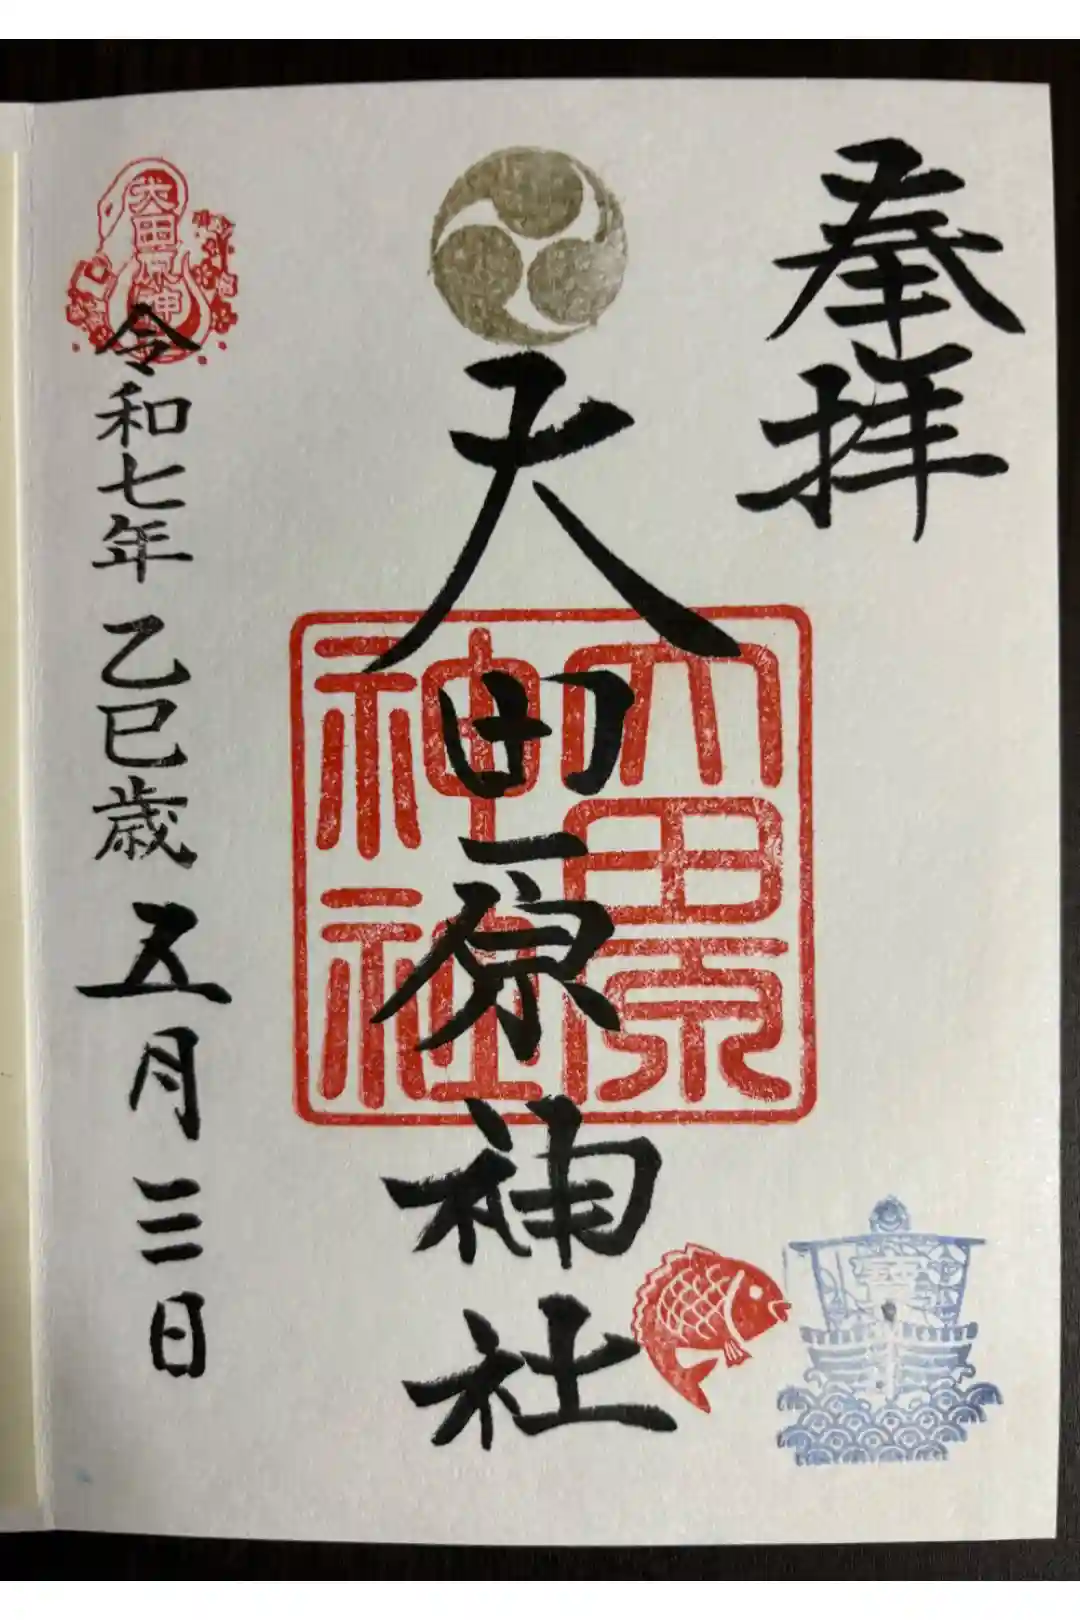 奉拝
大田原神社
大田原
神社
大田原神
令和七年乙巳歳五月三日